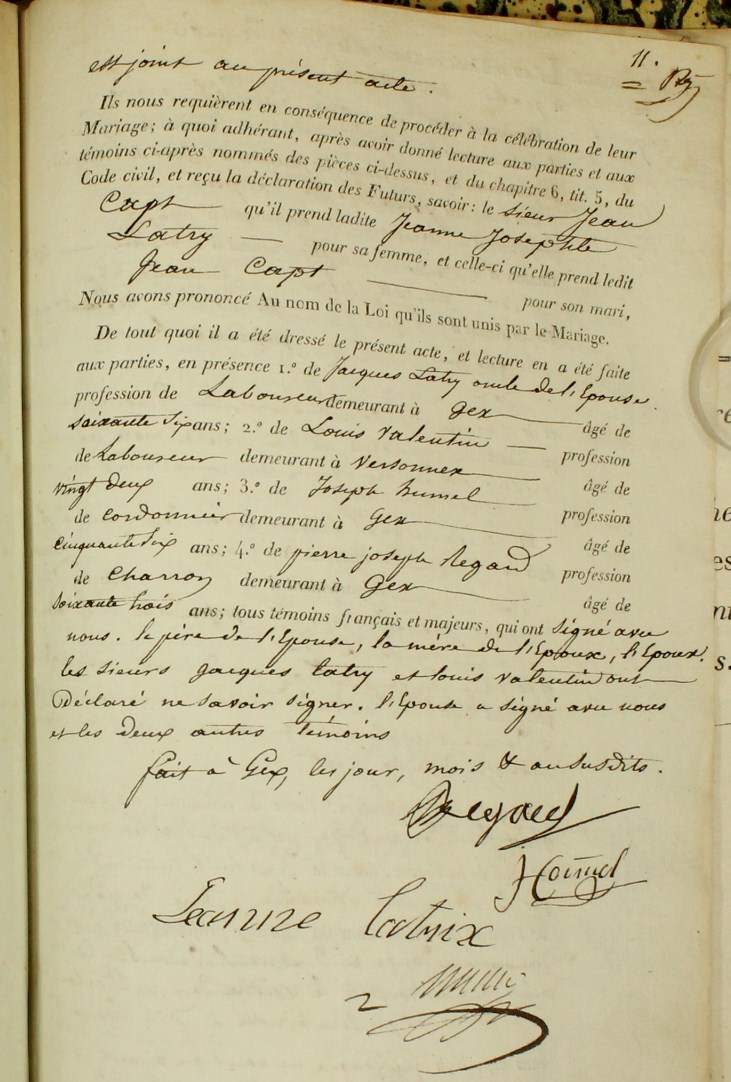 11.
est joint au présent acte.
Ils nous requièrent en conséquence de procéder à la célébration de leur
Mariage; à quoi adhérant, après avoir donné lecture aux parties et aux
témoins ci-après nommés des pièces ci-dessus, et du chapitre 6, tit. 5, du
Code civil, et reçu la déclaration des Futurs, savoir: le Sieur Jean
Capt qu'il prend ladite Jeanne Josephte
Latry — pour sa femme, et celle-ci qu'elle prend ledit
Jean Capt — pour son mari,
Nous avons prononcé Au nom de la Loi qu'ils sont unis par le Mariage.
De tout quoi il a été dressé le présent acte, et lecture en a été faite
aux parties, en présence 1.º de Jacques Latry oncle de l'Epouse.
profession de Laboureur demeurant à Gex — âgé de
soixante six ans; 2.º de Louis Valentin — profession
de Laboureur demeurant à Versonnex — âgé de
vingt deux ans; 3.º de Joseph — profession
de Cordonnier demeurant à Gex — âgé de
cinquante six ans; 4.º de pierre joseph Regard profession
de Charron demeurant à Gex — âgé de
soixante trois ans; tous témoins français et majeurs, qui ont signé avec
nous. le père de l'Epouse, la mère de l'Epoux, l'Epoux.
les sieurs Jacques Latry et Louis Valentin ont
Déclaré ne savoir signer. l'Epouse a signé avec nous
et les deux autres témoins
fait à Gex, les jour, mois & an susdits.
Regard
Jeanne Latrix